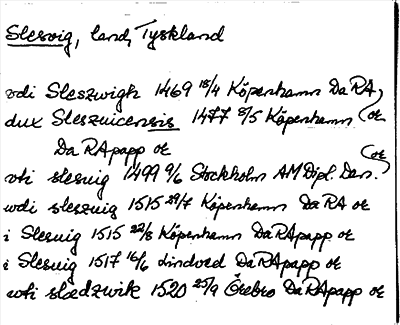 Slesvig, land, Tyskland
vdi Sleszwigh 1469 18/4 Köpenhamn DaRA,
dux Sleszuicensis 1477 8/5 Köpenhamn or
DaRApapp or
vti slesuig 1499 9/6 Stockholm AM Dipl. Dan. or
wdi sleszuig 1515 29/7 Köpenhamn DaRA or
i Slesuig 1515 22/8 Köpenhamn DaRApapp or
i Slesuig 1517 16/6 Lindved DaRApapp or
wti slædzwik 1520 25/9 Örebro DaRApapp or